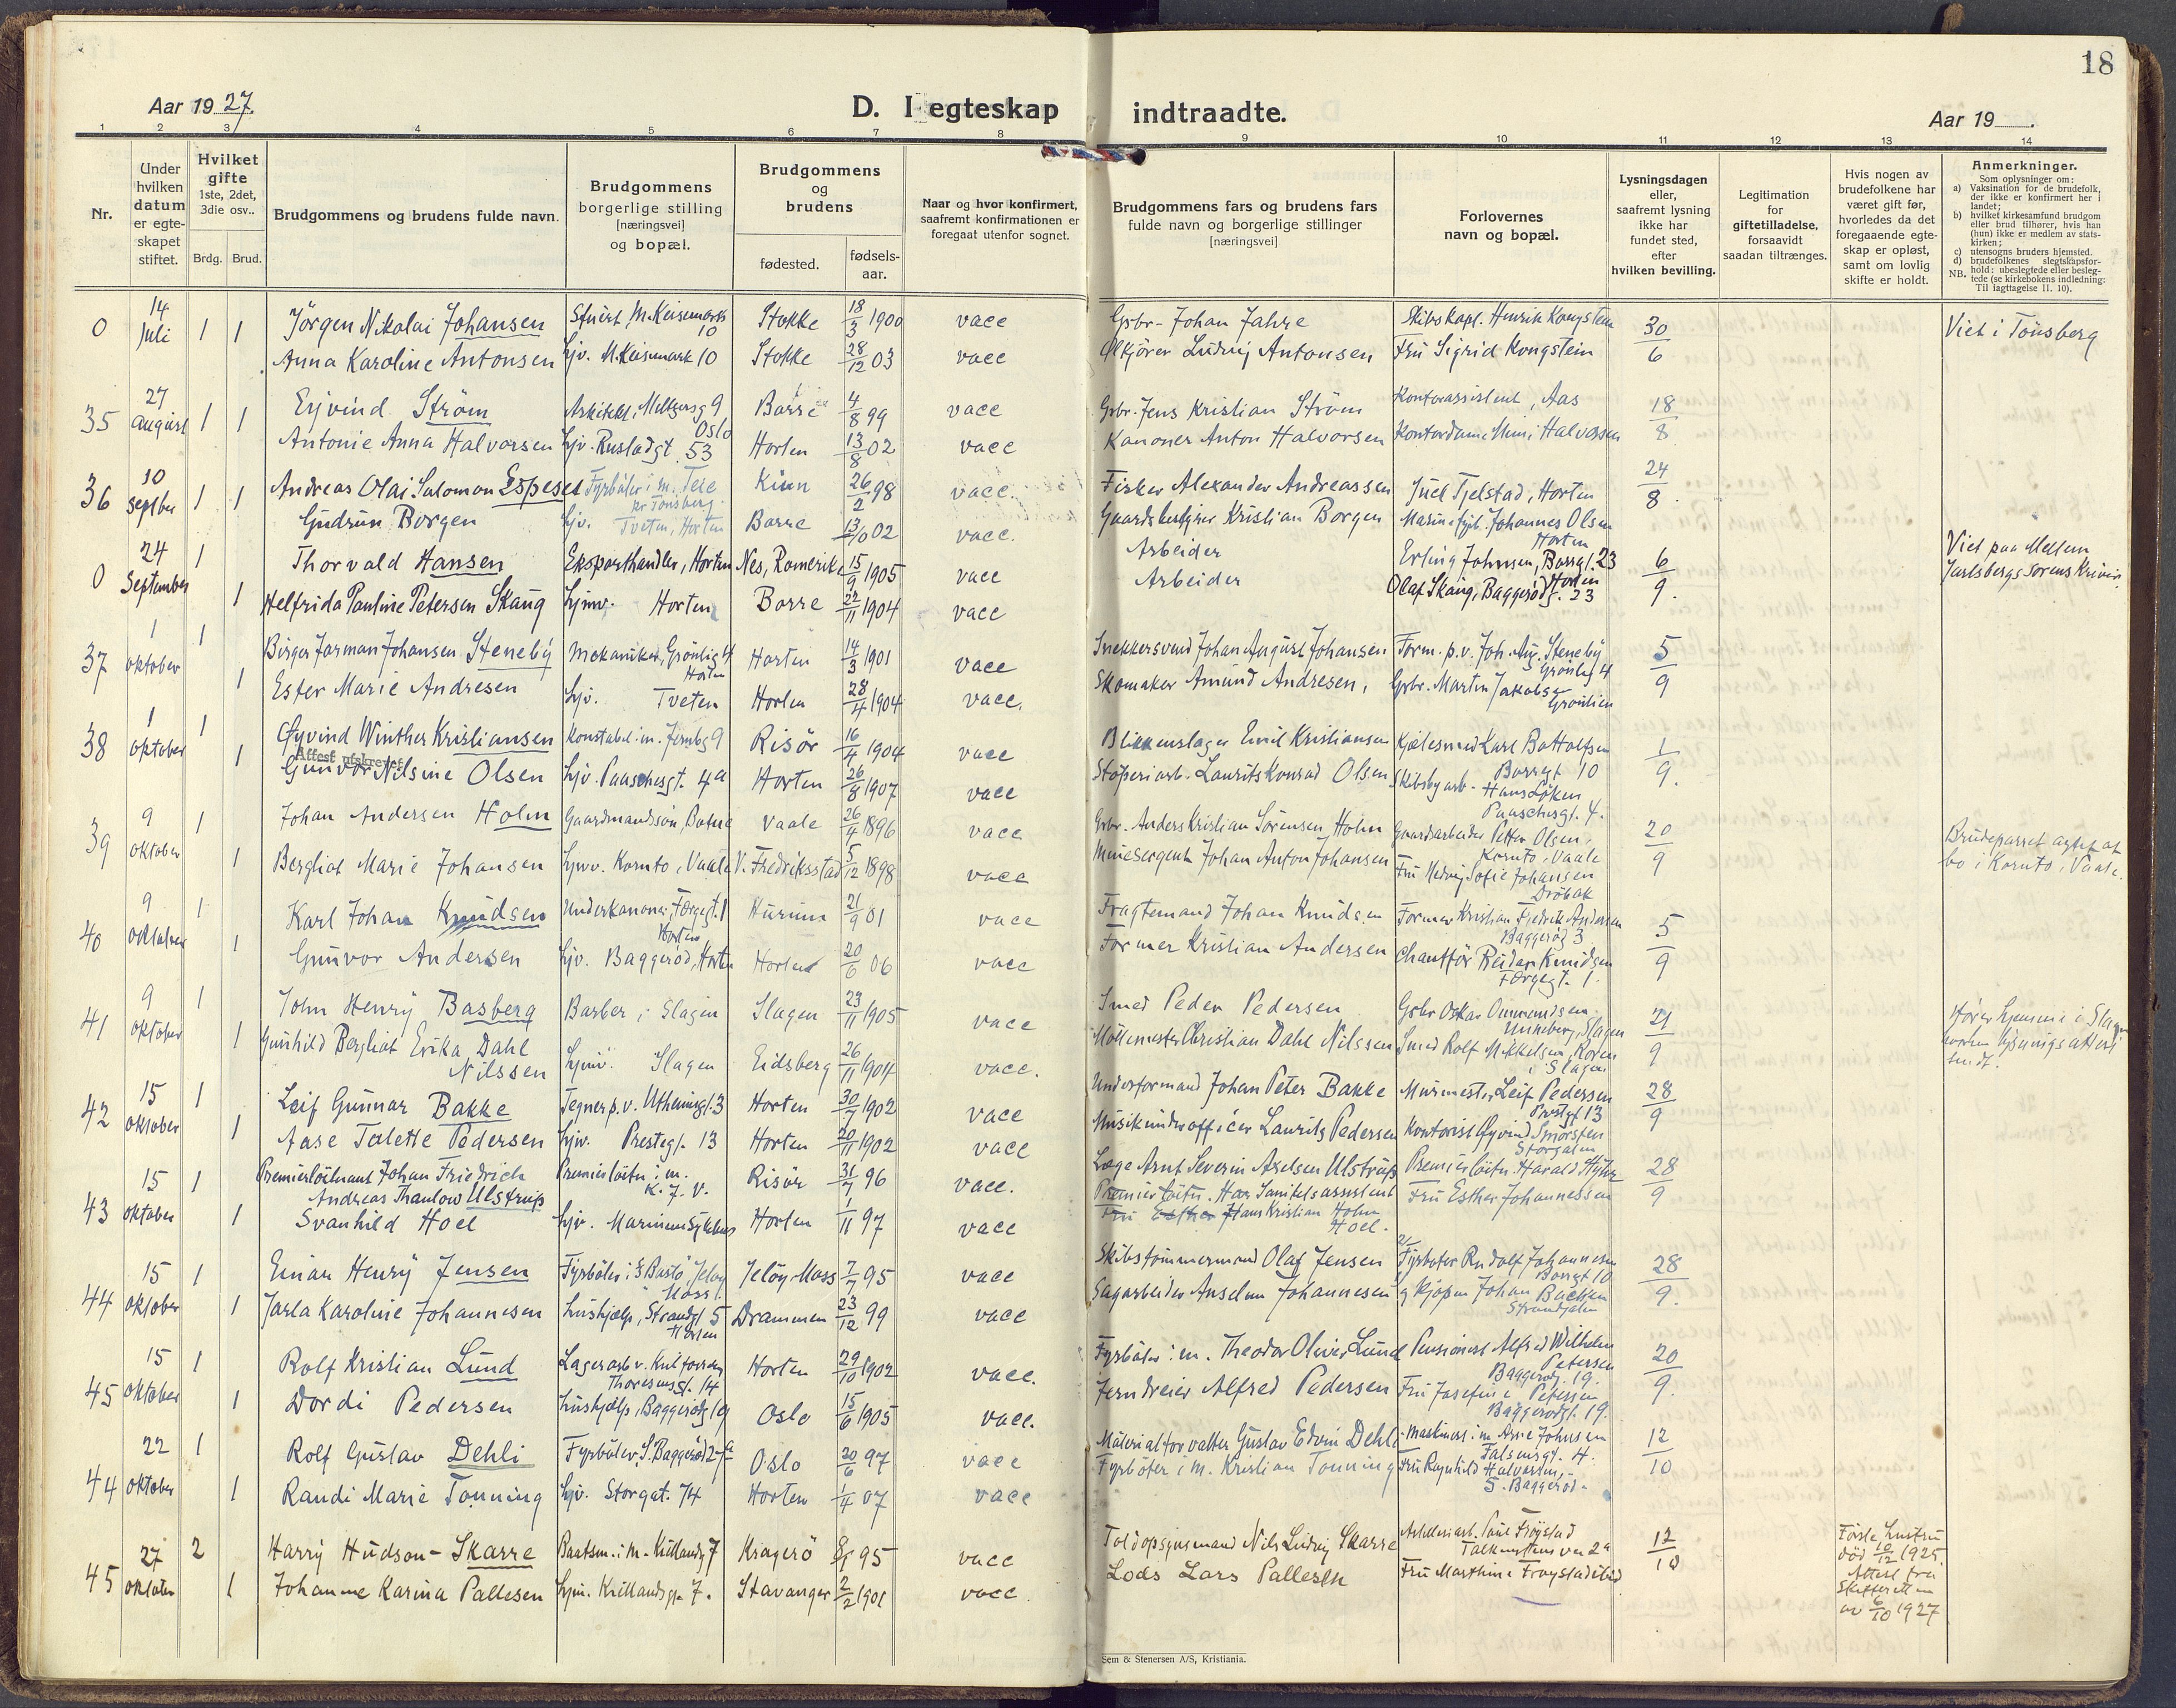 18
Aar 1927.
D. I egteskap indtraadte.
Aar 19
1 2 3 4 5 6 7 8 9 10 11 12 13 14
Nr.
Under hvilken datum er egte-skapet stiftet.
Hvilket gifte 1ste, 2det, 3die osv..
Brdg. Brud.
Brudgommens og brudens fulde navn.
Brudgommens borgerlige stilling [næringsvei] og bopæl.
Brudgommens og brudens
fødested.
fødsels-aar.
Naar og hvor konfirmert, saafremt konfirmationen er foregaat utenfor sognet.
Brudgommens fars og brudens fars fulde navn og borgerlige stillinger [næringsvei]
Forlovernes navn og bopæl.
Lysningsdagen eller, saafremt lysning ikke har fundet sted, efter hvilken bevilling.
Legitimation for giftetilladelse, forsaavidt saadan tiltrænges.
Hvis nogen av brudefolkene har været gift før, hvorledes da det foregaaende egte-skap er opløst, samt om lovlig skifte er holdt.
Anmerkninger.
Som oplysninger om:
a) Vaksination for de brudefolk, der ikke er konfirmert her i landet;
b) hvilket kirkesamfund brudgom eller brud tilhører, hvis han (hun) ikke er medlem av stats-kirken;
c) utensogns bruders hjemsted.
d) brudefolkenes slegtskapsfor-hold: ubeslegtede eller besleg-tede (se kirkebokens indledning: Til iagttagelse II. 10).
NB.
0 14 Juli 1 1 Jörgen Nikolai Johansen Stuert 10 Stokke 18/3 1900 vacc Gsbr- Johan Jahre Skibskapt. Henrik Kongstein 30/6 Viet i Tönsberg
Anna Karoline Antonsen hjv. 10 Stokke 28/12 03 vacc Ludvig Antonsen Fru Sigrid Kongstein
35 27 August 1 1 Eyvind Ström Arkitekt, Meltzersg 9 Oslo Borre 4/8 99 vacc Gsbr. Jens Kristian Ström Kontorassistent, Aas 18/8
Antonie Anna Halvorsen hjv. Rustadgt. 53 Horten 13/8 02 vacc Kanoner Anton Halvorsen Kontordame Mimi Halvorsen
36 10 Septber 1 1 Andreas Olai Salomon Espeset Fyrböter i m. Teie nr Tönsberg Kinn 26/2 98 vacc. Fisker Alexander Andreassen Juel Tjelstad, Horten 24/8.
Gudrun Borgen hjv. Tveten, Horten Borre 13/10 02 vacc. Gaardsbestyrer Kristian Borgen Johannes Olsen Horten
0 24 September 1 Thorvald Hansen Eksporthandler, Horten Nes, Romerike 15/9 1905 vacc Arbeider Erling Johnsen, Borregt. 23 Horten 6/9. Viet paa Mellem Jarlsbergs
1 Helfrida Pauline Petersen Skaug hjmv. Horten Borre 22/11 1904 vacc Arbeider Olaf Skaug, Baggerödg. 23
37 1 oktober 1 Birger Jarman Johansen Steneby Mekaniker, Grönlig 4 Horten Horten 14/3 1901 vacc Snekkersvend Johan August Johansen Form. p.v. Joh. Aug. Steneby Grönlig 4 5/9
1 Ester Marie Andresen hjv. Tveten Horten 28/4 1904 vacc. Skomaker Amund Andresen, Gsbr. Martin Jakobsen Grönlien
38 1 oktober 1 Øyvind Winther Kristiansen Konstabel i m. 9 Risör 16/4 1904 vacc Blikkenslager Emil Kristiansen Kjelesmed Karl Bottolfsen Borregt 10 1/9.
Attest utskrevet
1 Gunvor Nilsine Olsen hjv. Paaschesgt. 4a Horten 26/8 1907 vacc Stöperiarb. Laurits Konrad Olsen Skibsbyarb- Hans Löken Paaschesgt. 4.
39 9 oktober 1 Johan Andersen Holm Gaardmandssön, Vaale 26/4 1896 vacc Gsbr. Anders Kristian Sörensen Holm Gaardsarbeider Petter Olsen, Kornto, Vaale 20/9 Brudeparret agter at bo i Kornto, Vaale.
1 Bergliot Marie Johansen hjmv. Kornto, Vaale V. Fredriksstad 5/12 1898 vacc Minesergent Johan Anton Johansen Fru Hedvig Sofie Johansen Dröbak
40 9 oktober 1 Karl Johan Knudsen Underkanoner, Færgegt. 1 Horten Hurum 21/9 01 vacc Fragtemand Johan Knudsen Former Kristian Fredrik Andersen Baggeröd 3 5/9
1 Gunvor Andersen hjv. Baggeröd, Horten Horten 20/6 06 vacc Former Kristian Andersen Chaufför Reidar Knudsen Færgegt. 1.
41 9 oktober 1 John Henry Basberg Barber i Slagen Slagen 23/11 1905 vacc Smed Peder Pedersen Gsbr Oskar Unneberg, Slagen 21/9
1 Gunhild Bergliot Erika Dahl Nilssen hjmv. Slagen Eidsberg 26/11 1904 vacc. Möllemester Christian Dahl Nilssen Smed Rolf Mikkelsen, i Slagen
42 15 oktober 1 Leif Gunnar Bakke Tegner p.v. 3 Horten 30/7 1902 vacc Underformand Johan Peter Bakke Murmester Leif Pedersen Prestgt 13 28/9
1 Aase Talette Pedersen hjv. Prestegt. 13 Horten 20/11 1902 vacc Musikunderofficer Laurits Pedersen Kontorist Øyvind Storgaten
43 15 oktober 1 Premierlöitnant Johan Friedrich Andreas Thaulow Ulstrup Premierlöitn i m. Risör 31/7 96 vacc. Læge Arnt Severin Axelsen Ulstrup Premierlöitn. Harald 28/9
1 Svanhild Hoel hjv. Marinens Sykehus Horten 1/11 97 vacc Sanitetsassistent Hans Kristian Holm Hoel. Fru Esther Johannessen
44 15 oktober 1 Einar Henry Jensen Fyrböter i Jelöy Moss. Jelöy Moss 7/7 95 vacc Skibstömmermand Olaf Jensen Fyrböter Rudolf Johannesen Borregt 10 28/9.
1 Jarla Karoline Johannesen Hushjælp, Strandgt 5 Horten Drammen 23/12 99 vacc Sagarbeider Anselm Johannesen Johan Strandgaten
45 15 oktober 1 Rolf Kristian Lund Lagerarb v. Thoresensgt. 14 Horten 29/10 1902 vacc. Fyrböter i m. Theodor Oliver Lund Pensionist Alfred Wilhelm Petersen Baggerödg. 19. 20/9.
1 Dordi Pedersen Hushjælp, Baggerödg 19 Oslo 15/6 1905 vacc. Jerndreier Alfred Pedersen Fru Josefine Petersen Baggerödgt. 19.
44 22 oktober 1 Rolf Gustav Dehli Fyrböter, S. Baggeröd Oslo 20/6 97 vacc Materialforvalter Gustav Edvin Dehli Maskinist i m. Arne Johnsen Falsensgt. 4. 12/10
1 Randi Marie Tonning hjv. Storgat. 74 Horten 1/4 07 vacc Fyrböter i m. Kristian Tonning Fru Ragnhild Halvorsen, S. Baggeröd.
45 27 oktober 2 Harry Hudson-Skarre Baatsm. i m. 7 Kragerö 95 vacc Toldopsynsmand Nils Ludvig Skarre 12/10 Første hustru död 10/12 1925. Attest fra Skifteretten av 6/10 1927
1 Johanne Karina Pallesen hjm. 7. Stavanger 2/2 1901 vacc. Lods Lars Pallesen Fru Marthine
Sem & Stenersen A/S, Kristiania.